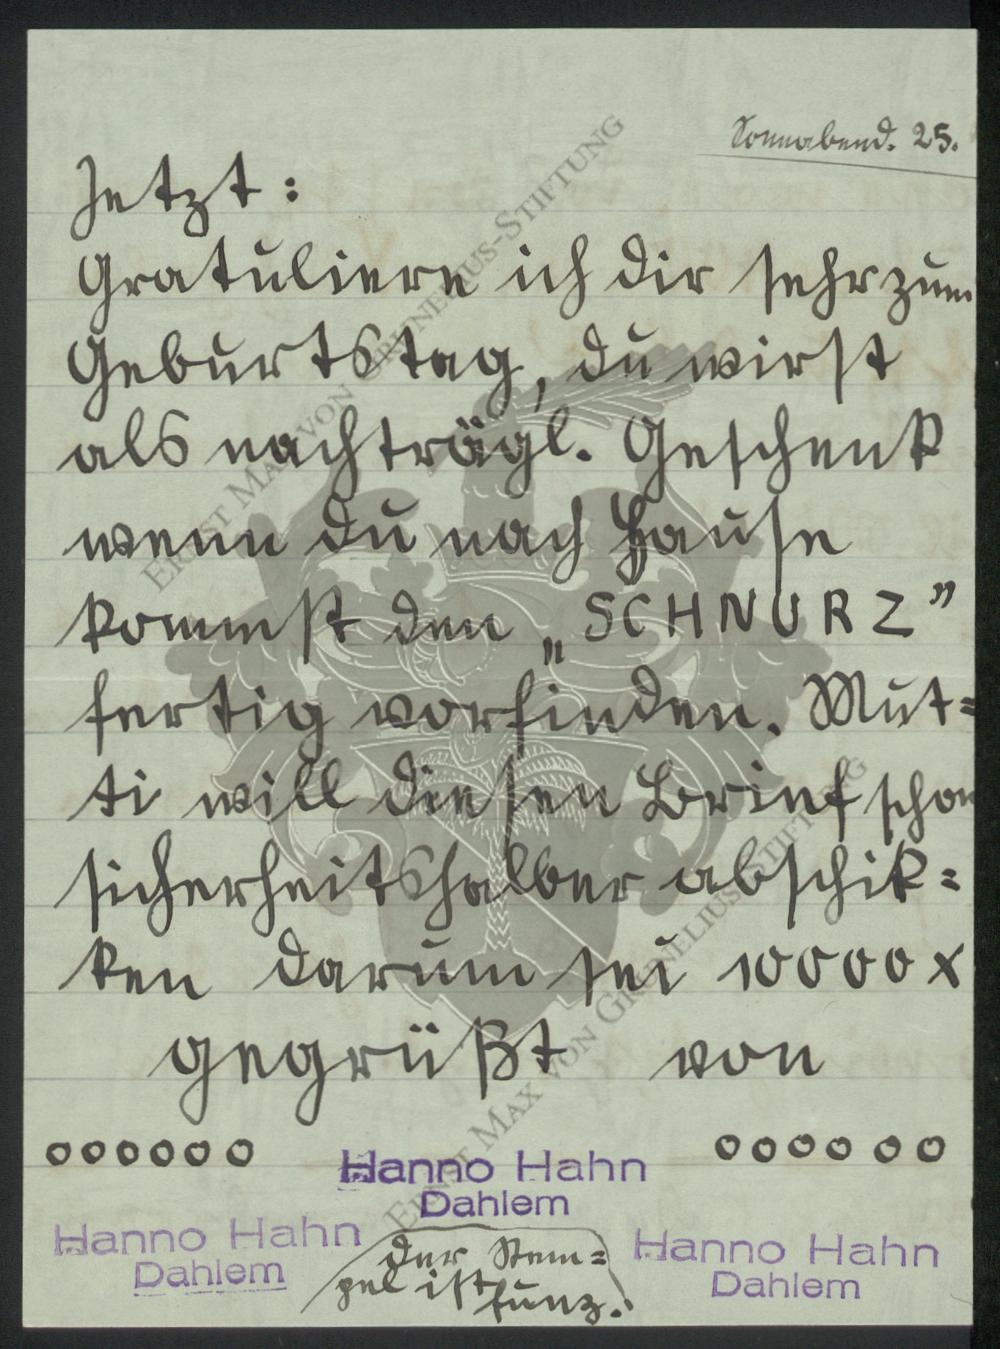 Sonnabend. 25.
Jetzt:
Gratuliere ich dir sehr zum
Geburtstag, du wirst
als nachträgl. Geschenk
wenn du nach Hause
kommst den „SCHNURZ”
fertig vorfinden. Mut=
ti will diesen Brief schon
sicherheitshalber abschik=
ken darum sei 10000 x
gegrüßt von
oooooo oooooo
Hanno Hahn
Dahlem
Hanno Hahn
Dahlem
der Stem=
pel ist
Hanno Hahn
Dahlem
ERNST MAX VON GRUNELIUS-STIFTUNG
ERNST MAX VON GRUNELIUS-STIFTUNG